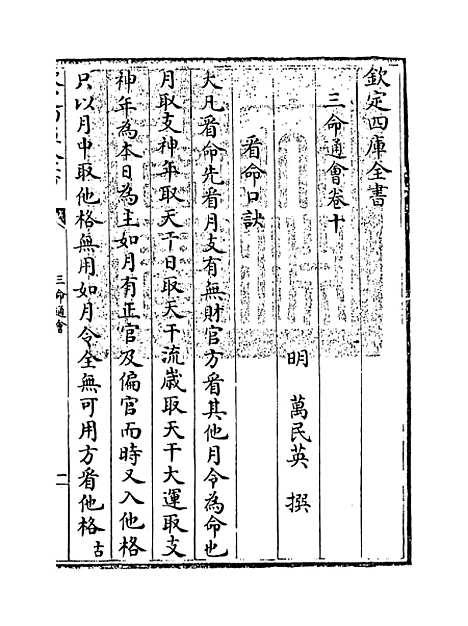 欽定四庫全書
三命通會卷十
明 萬民英 撰
看命口訣
大凡看命先看月支有無財官方看其他月令為命也
月取支神年取天干日取天干流歲取天干大運取支
神年為本日為主如月有正官及偏官而時又入他格
只以月中取他格無用如月令全無可用方看他格古
三命通會